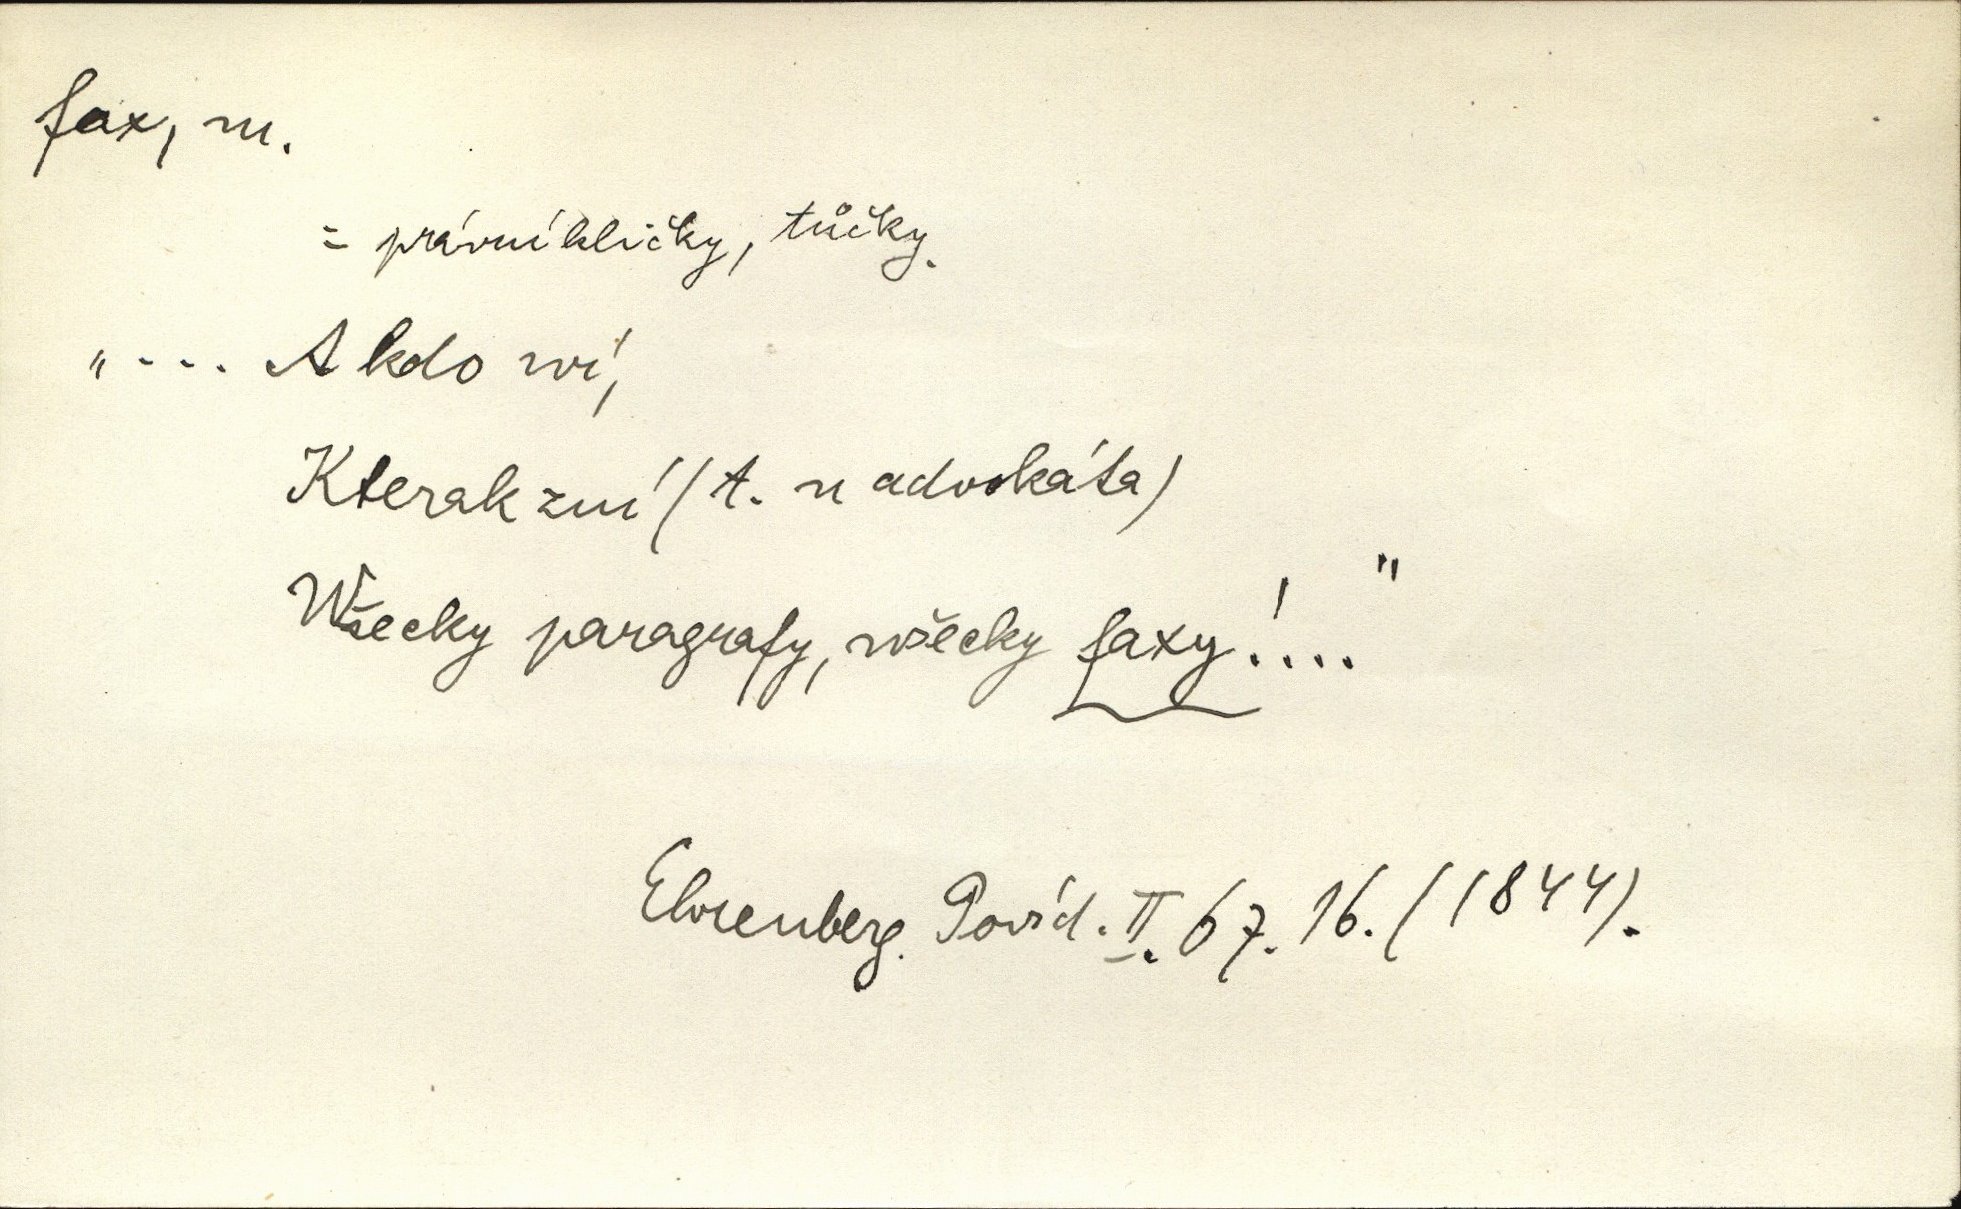 fax, m.
= právní kličky, tůčky.
"... A kdo wí,
Kterak zní (t. u advokáta)
Wšecky paragrafy, wšecky faxy!...."
Ehrenberg. Povíd. II. 67. 16. (1844).